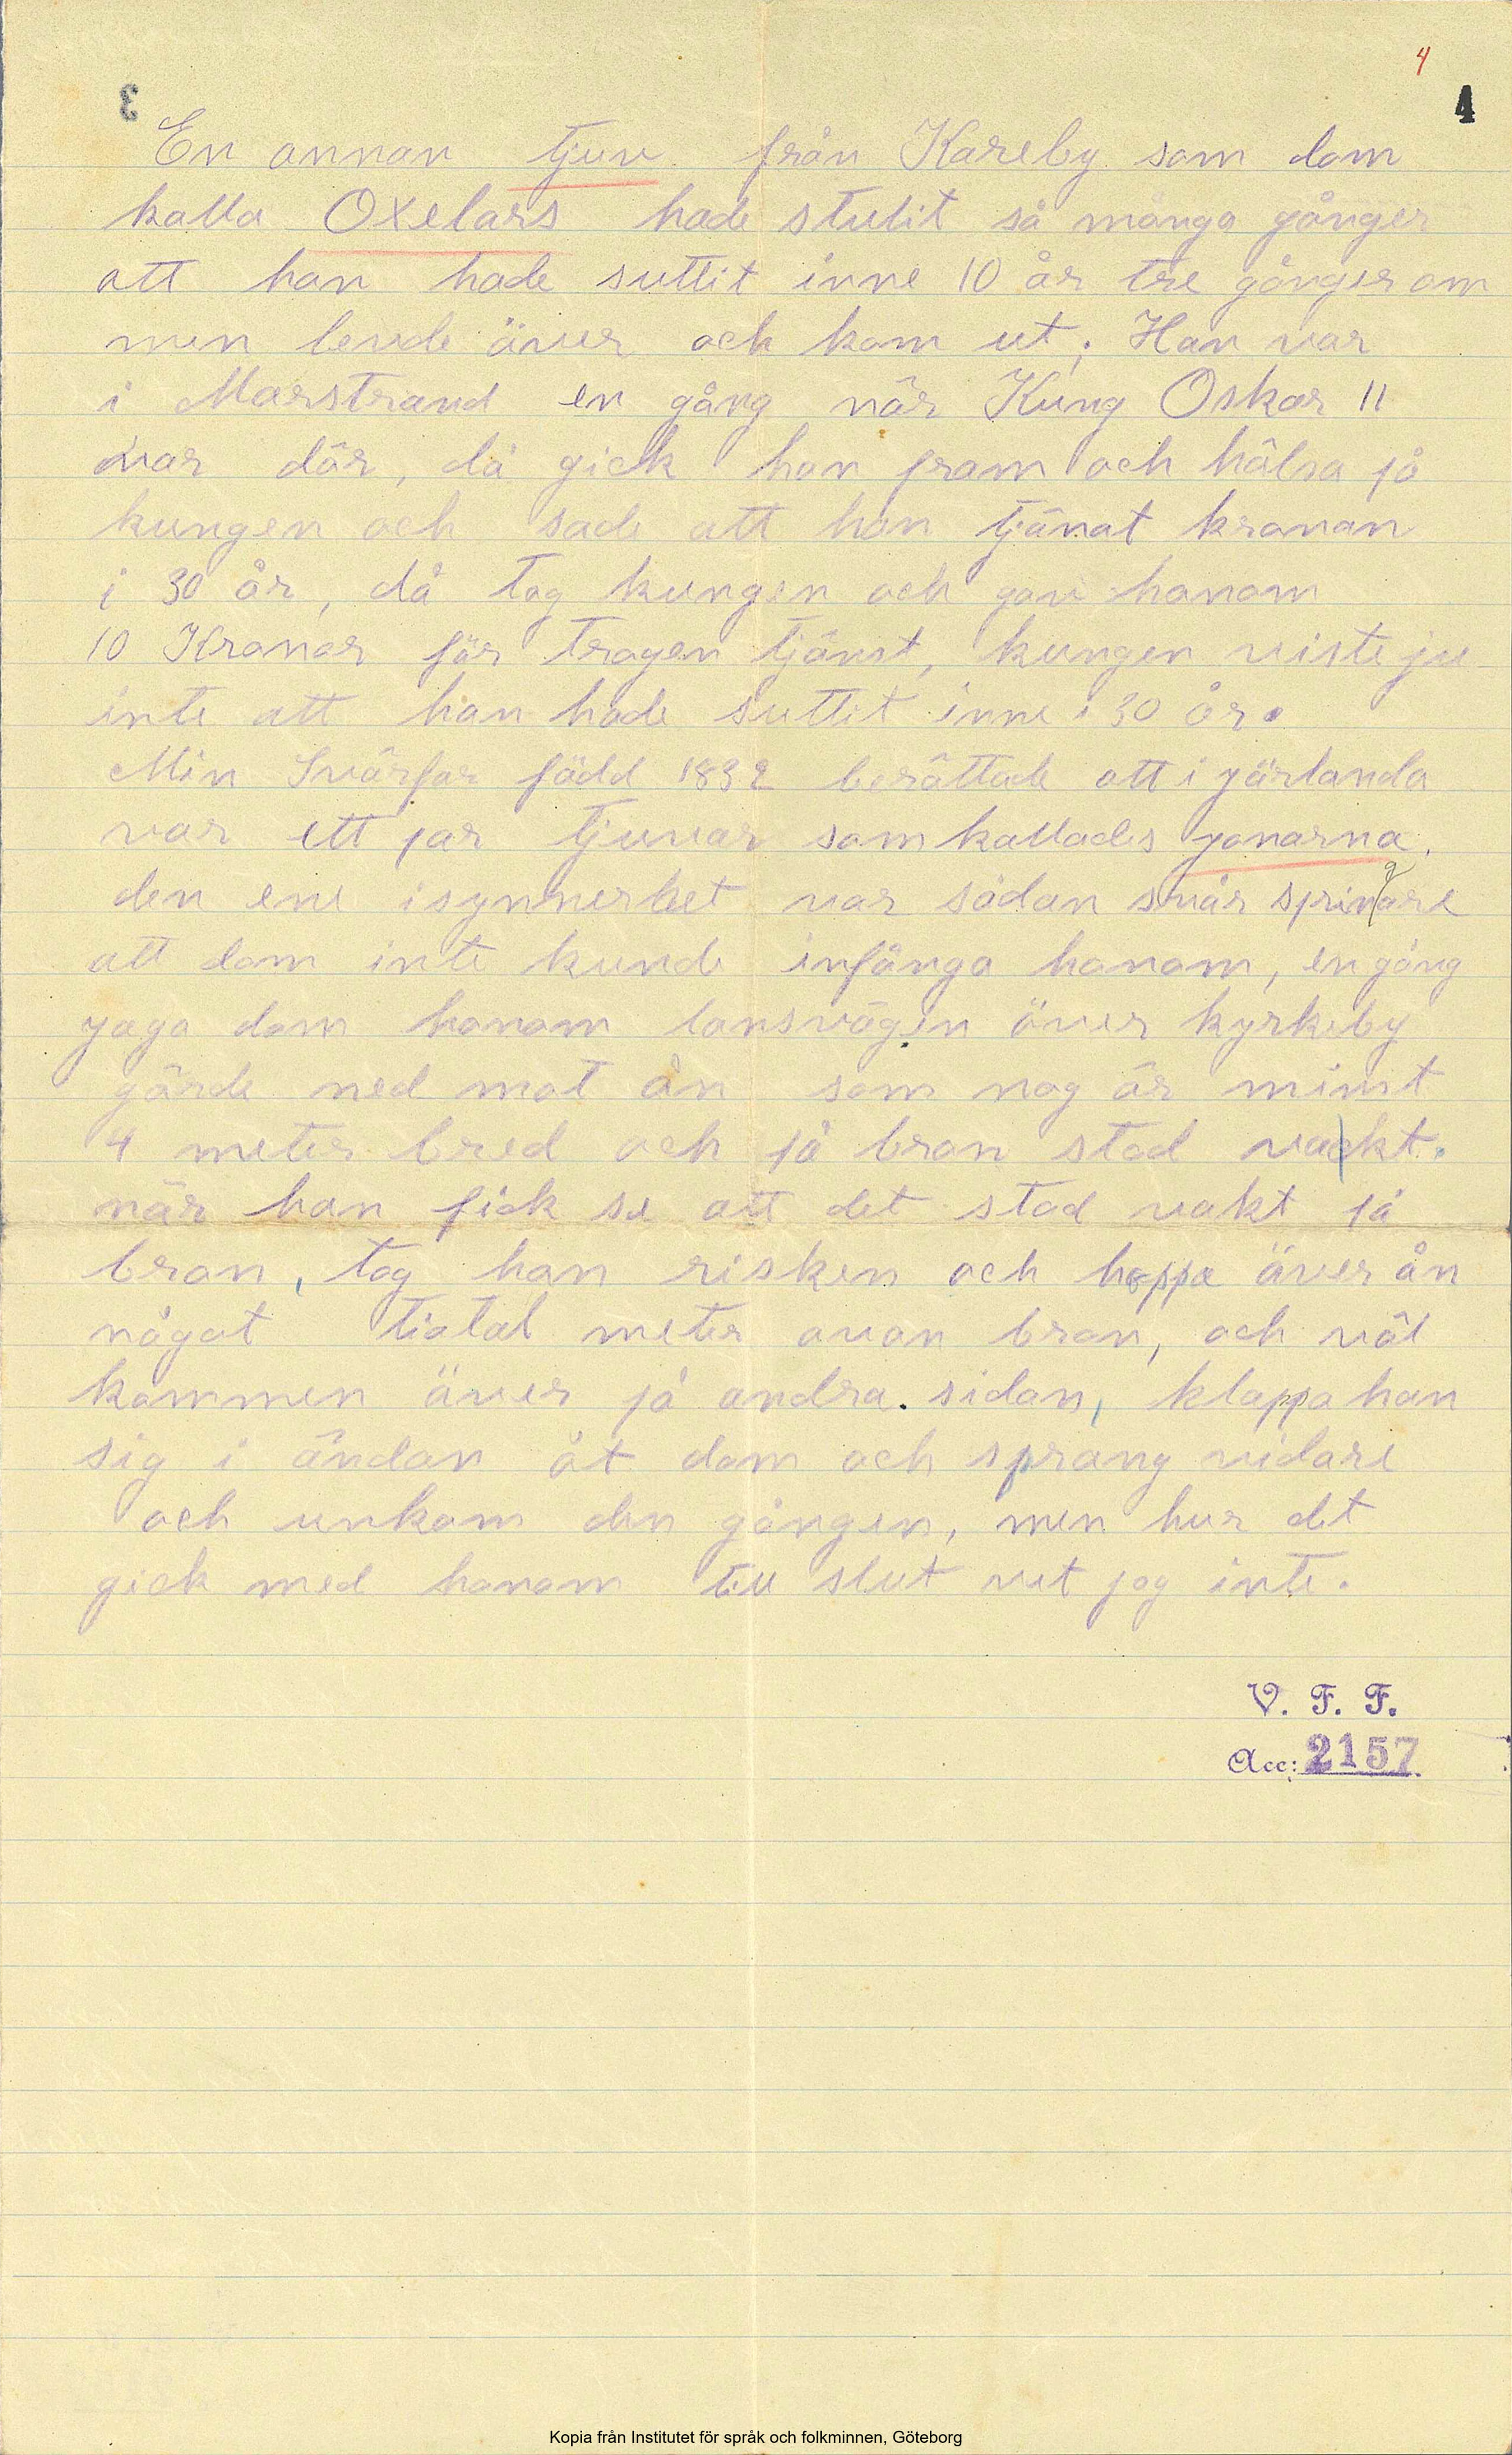 4
3
4
En annan tjuv från Kareby som dom
kalla Oxelars hade stulit så många gånger
att han hade suttit inne 10 år tre gånger om
men levde över och kom ut. Han var
i Marstrand en gång när Kung Oskar II
var där, då gick han fram och hälsa på
kungen och sade att han tjänat kronan
i 30 år, då tog kungen och gav honom
10 Kronor för trogen tjänst, kungen viste ju
inte att han hade suttit inne i 30 år.
Min Svärfar född 1832 berättade att i järlanda
var ett par tjuvar som kallades jonarna.
den ene isynnerhet var sådan svår springare
att dom inte kunde infånga honom, en gång
jaga dom honom lansvägen över kyrkeby
gärde ned mot ån som nog är minst
4 meter bred och på bron stod vackt.
när han fick se att det stod vakt på
bron, tog han risken och hoppa över ån
något tiotal meter ovan bron, och väl
kommen över på andra sidan, klappa han
sig i ändan åt dom och sprang vidare
och unkom den gången, men hur det
gick med honom till slut vet jag inte.
V. F. F.
Acc: 2157
Kopia från Institutet för språk och folkminnen, Göteborg